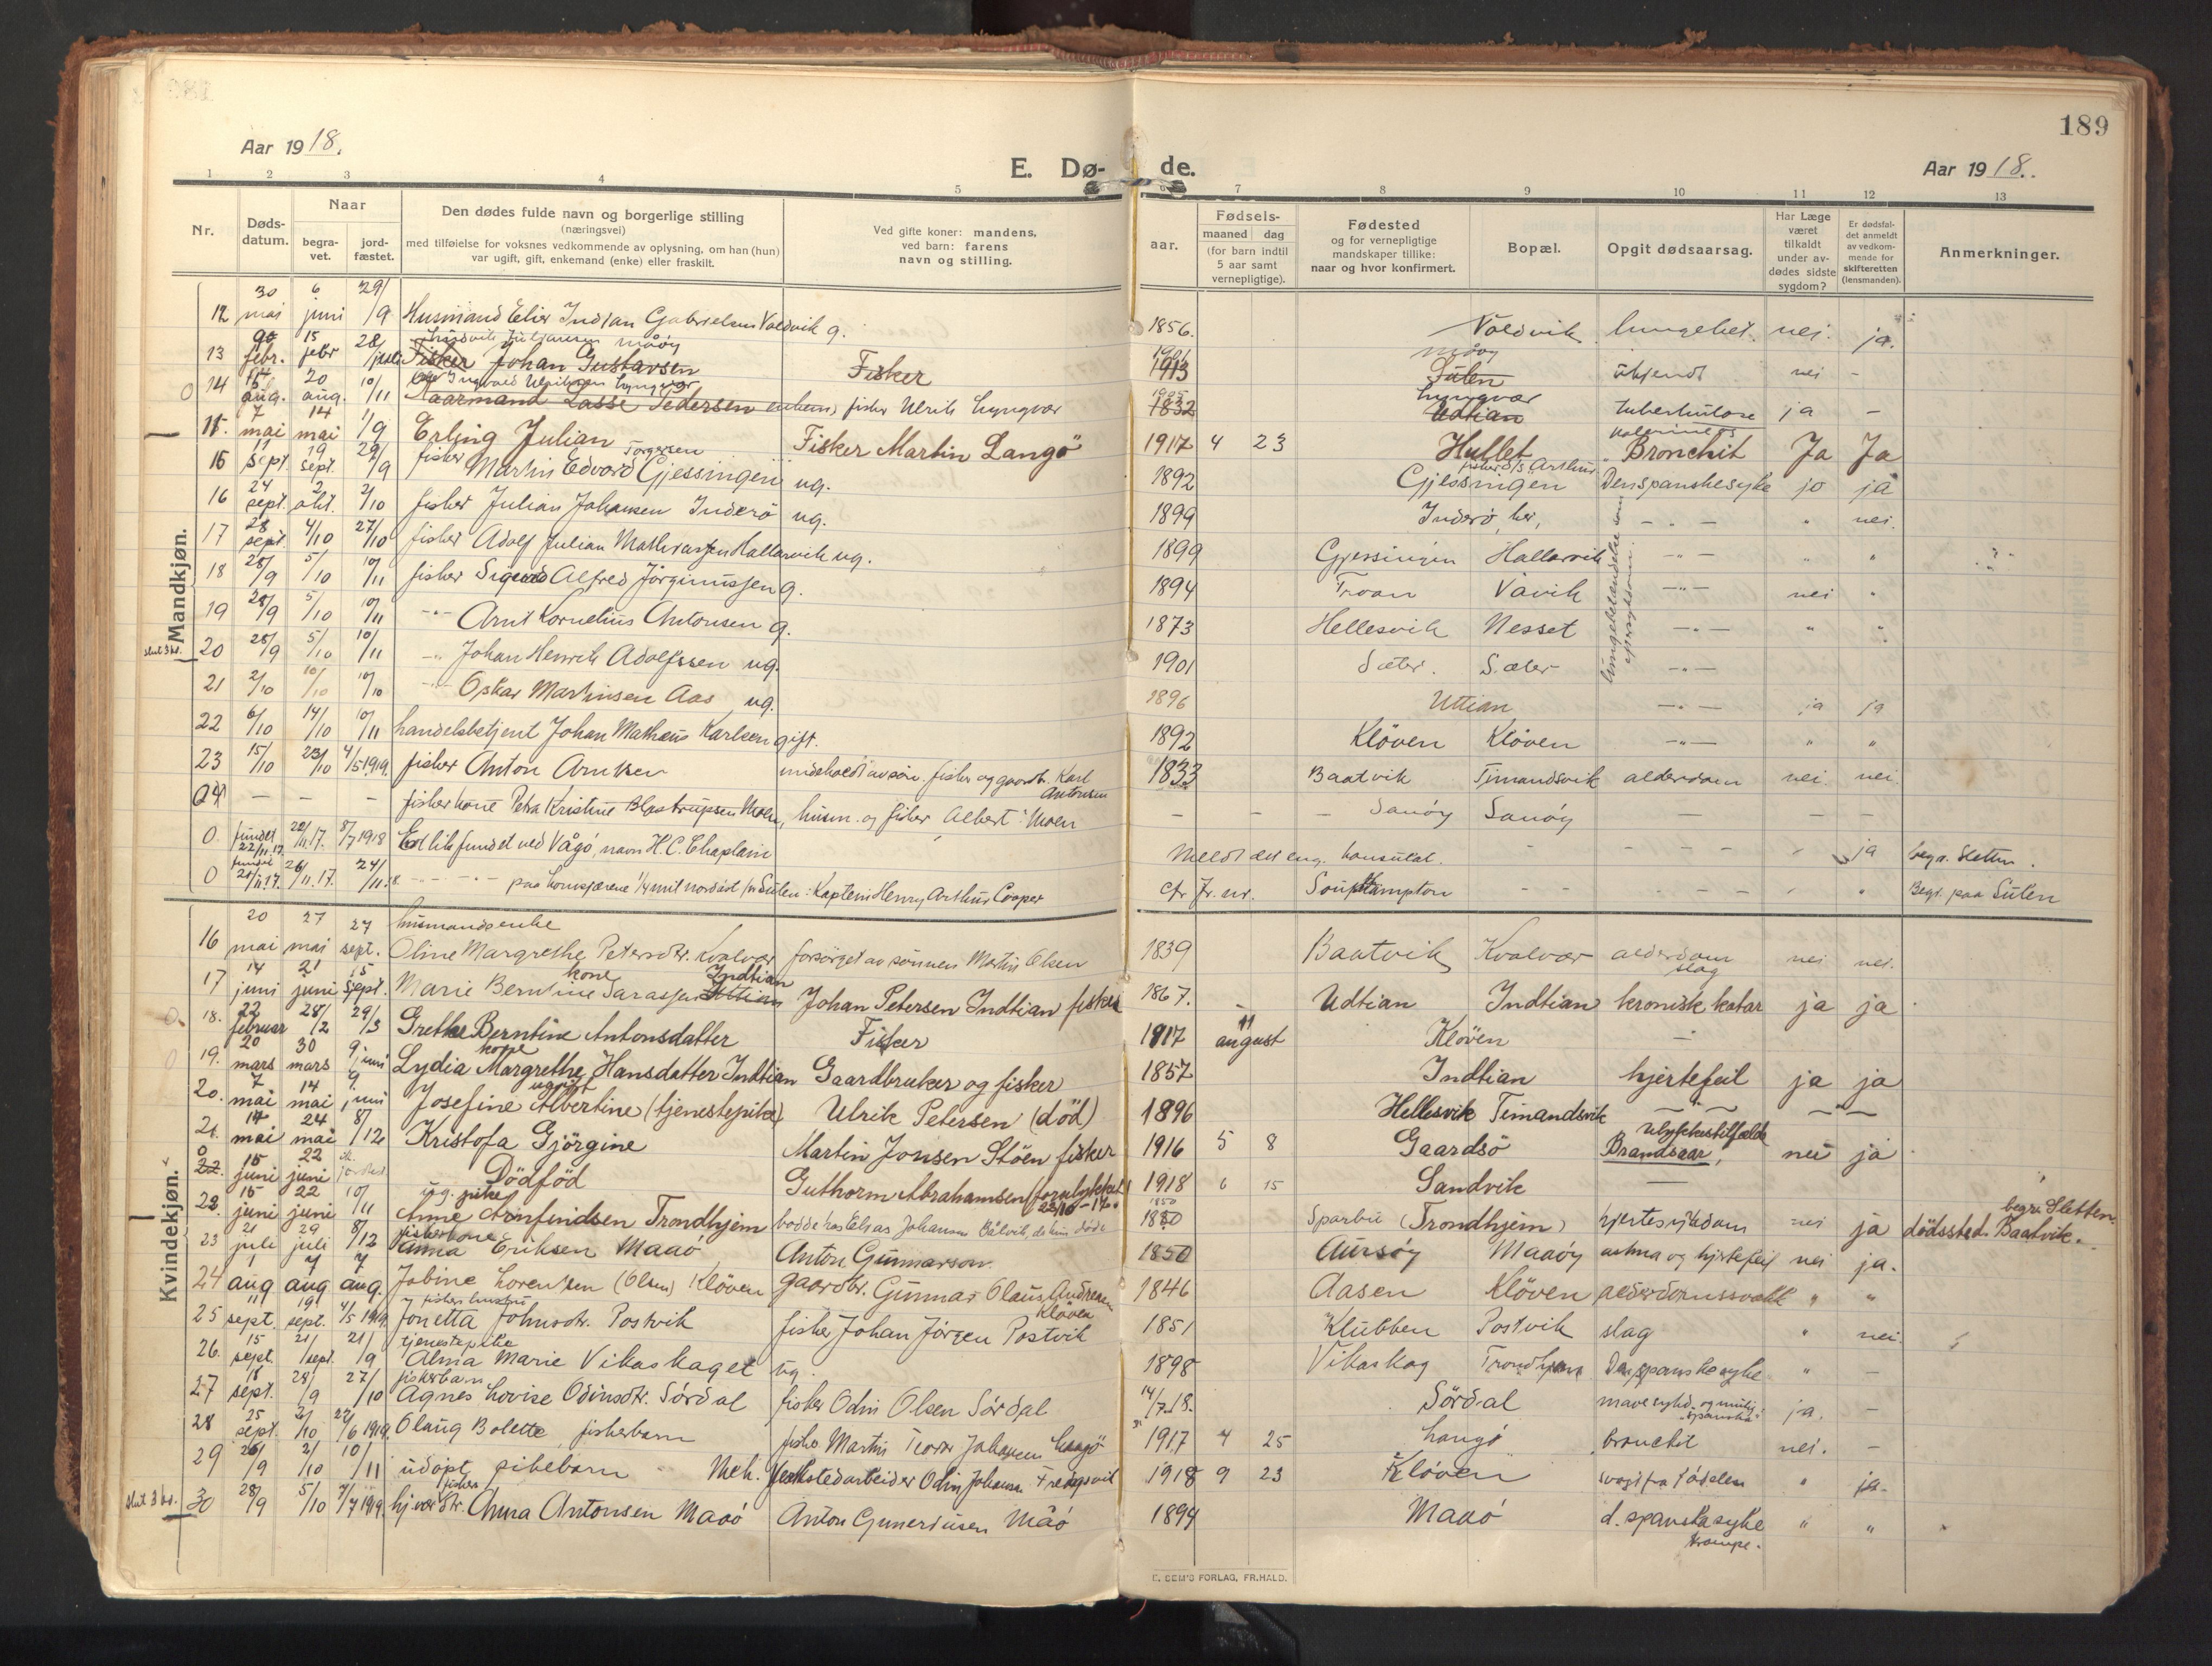 189
Aar 1918.
E. Dø- de.
Aar 1918.
1 2 3 4 5 6 7 8 9 10 11 12 13
Nr.
Døds-datum.
Naar
begra-vet.
jord-fæstet.
Den dødes fulde navn og borgerlige stilling
(næringsvei)
med tilføielse for voksnes vedkommende av oplysning, om han (hun)
var ugift, gift, enkemand (enke) eller fraskilt.
Ved gifte koner: mandens,
ved barn: farens
navn og stilling.
aar.
Fødsels-
maaned dag
(for barn indtil
5 aar samt
vernepligtige).
Fødested
og for vernepligtige
mandskaper tillike:
naar og hvor konfirmert.
Bopæl.
Opgit dødsaarsag.
Har Læge
været
tilkaldt
under av-
dødes sidste
sygdom?
Er dødsfal-
det anmeldt
av vedkom-
mende for
skifteretten
(lensmanden).
Anmerkninger.
Mandkjøn.
12 30 mai 6 juni 29/9 Husmand Elier Indian Gabrielsen Valdvik g. 1856. Valdvik nei. ja.
Ludvik Julianssen Maøy
13 febr. 15 febr 28/juli Fisker Johan Gustavsen Fisker 1913 Sulen ukjendt nei -
Ingvald Ulriksen Lyngvær
0 14 aug. 20 aug. 10/11 Kaarmand Lasse Pedersen enkem. fisker Ulrik Lyngvær 1832 Lyngvær Udtian tuberkulose ja -
15. 7 mai 14 mai 1/9 Erling Julian Fisker Martin Langö 1917 4 23 Hullet Bronchit Ja Ja
15 11 sept. 19 sept. 29/9 fisker Martin Edvard Torgersen Gjessingen ug. 1892 Gjessingen Den spanske syke jo ja
16 24 sept. 2 okt. 2/10 fisker Julian Johansen Inderø ug. 1899 Inderø, her, - " - " nei.
17 28 sept. 4/10 27/10 fisker Adolf Julian Mathiassen Hallarvik ug. 1899 Gjessingen Hallarvik - " - " "
18 28/9 5/10 10/11 fisker Sigurd Alfred Jörginussen g. 1894 Troan Vavik - " - nei "
19 28/9 5/10 10/11 - " - Arnt Kornelius Antonsen g. 1873 Hellesvik Nesset - " - " "
slut 3 kv. 20 28/9 5/10 10/11 - " - Johan Henrik Adolfssen ug. 1901 Sæter. Sæter - " -
21 2/10 10/10 10/10 - " - Oskar Martinsen Aas ug. 1896 Uttian - " - ja ja
22 6/10 14/10 10/11 handelsbetjent Johan Matheus Karlsen gift. 1892 Klöven Klöven - " - " "
23 15/10 23/10 4/5 1919. fisker Anton Arntsen underholdt av søn. fisker og gaardbr. Karl Antonsen 1833 Baatvik Timandsvik alderdom nei. nei.
24 - - - fisherkone Petra Kristine Blostrupsen Moen, husm. og fisker Albert Moen - - - Sanöy Sanöy - - -
0. fundet 22/11.17 22/11.17. 8/7 1918 Et lik fundet ved Vågö, navn H. C. Chaplain Meldt det eng. konsulat. - - - ja begr. Sletten.
0 fundet 21/11.17. 26/11.17. 24/11.18. - " - " - paa 1/4 mil nordost for Sulen: Kaptein Henry Arthur Cooper cfr Jr. nr. Southampton - - - " Begr. paa Sulen
Kvindekjøn.
husmandsenke
16 20 mai 27 mai 27 sept. Oline Margrethe Petersdtr. Kvalvær forsörget av sønnen Martin Olsen 1839 Baatvik Kvalvær alderdom slag nei nei.
17 14 juni 21 juni 15 sept. Marie Berntine Sarassen kone Indtian Johan Petersen Indtian fisker 1867. Udtian Indtian kronisk katar ja ja
18. 22 februar 28/2 29/3 Grethe Berntine Antonsdatter Fisker 1917 11 august Klöven -
19. 20 mars 30 mars 9 juni Lydia Margrethe Hansdatter kone Indtian Gaardbruker og fisker 1857 Indtian hjertefeil ja ja
20. 7 mai 14 mai 9. juni Josefine Albertine ugift (tjenestepike) Ulrik Petersen (död) 1896 Hellesvik Timandsvik - " - - " -
21. 17 mai 24 mai 8/12 Kristofa Gjörgine Martin Jonsen Stöen fisker 1916 5 8 Gaardsö Ulykkestilfælde Brandsaar, nei ja
0 22. 15 juni 22 juni Dödföd pike Guthorm Abrahamsen (forulykket 23/10-17.) 1918 6 15 Sandvik -
22. 15 juni 22 juni 10/11 ug. Anne Arnfindsen Trondhjem bodde hos Elias Johansen Båtvik, da hun døde 1850 Sparbu (Trondhjem) hjertesykdom nei ja begr. Sletten. dödssted. Baatvik.
23 21 juli 29 juli 8/12 fiskerkone Anna Eriksen Maaö Anton Gunnarson 1850 Aursöy Maaöy astma og hjertefeil nei ja.
24 1 aug 7 aug 7 aug. Jobine Lorentsen (Olsen) Klöven gaardbr. Gunnar Olaus Andresen Klöven 1846 Aasen Klöven alderdomssvakk " "
25 11 sept. 19 sept. 4/5 1919. fiskers hustru Jonetta Johnsdtr. Postvik fisker Johan Jörgen Postvik 1851 Klubben Postvik slag " nei
26. 15 sept. 21/sept. 21/9 tjenestepike Alma Marie Vikaskaget ug. 1898 Vikaskag Trondhjem Den spanske syke " -
27 18 sept. 28/9 27/10 fiskerbarn Agnes Lovise Odinsdtr. Sördal fisker Odin Olsen Sördal 14/7.18. Sördal mavesykd. og mulig "spanska" ja. -
28 25 sept. 2/10 22/6 1919. Olaug Bolette, fiskerbarn fisker Martin Johansen Langö 1917 4 25 Langö bronchit nei. -
29 26/9 2/10 10/11 udöpt pikebarn Mek. Verkstedarbeider Odin Johansen 1918 9 23 Klöven svakt fra födselen " ja.
slut 3 kv. 30 28/9 5/10 7/7 1919. fisker Anna Antonsen Maaö Anton Gunnerius en Måö 1894 Maaö d. spanska syke krampe. " "
E. SEM'S FORLAG, FR.HALD.